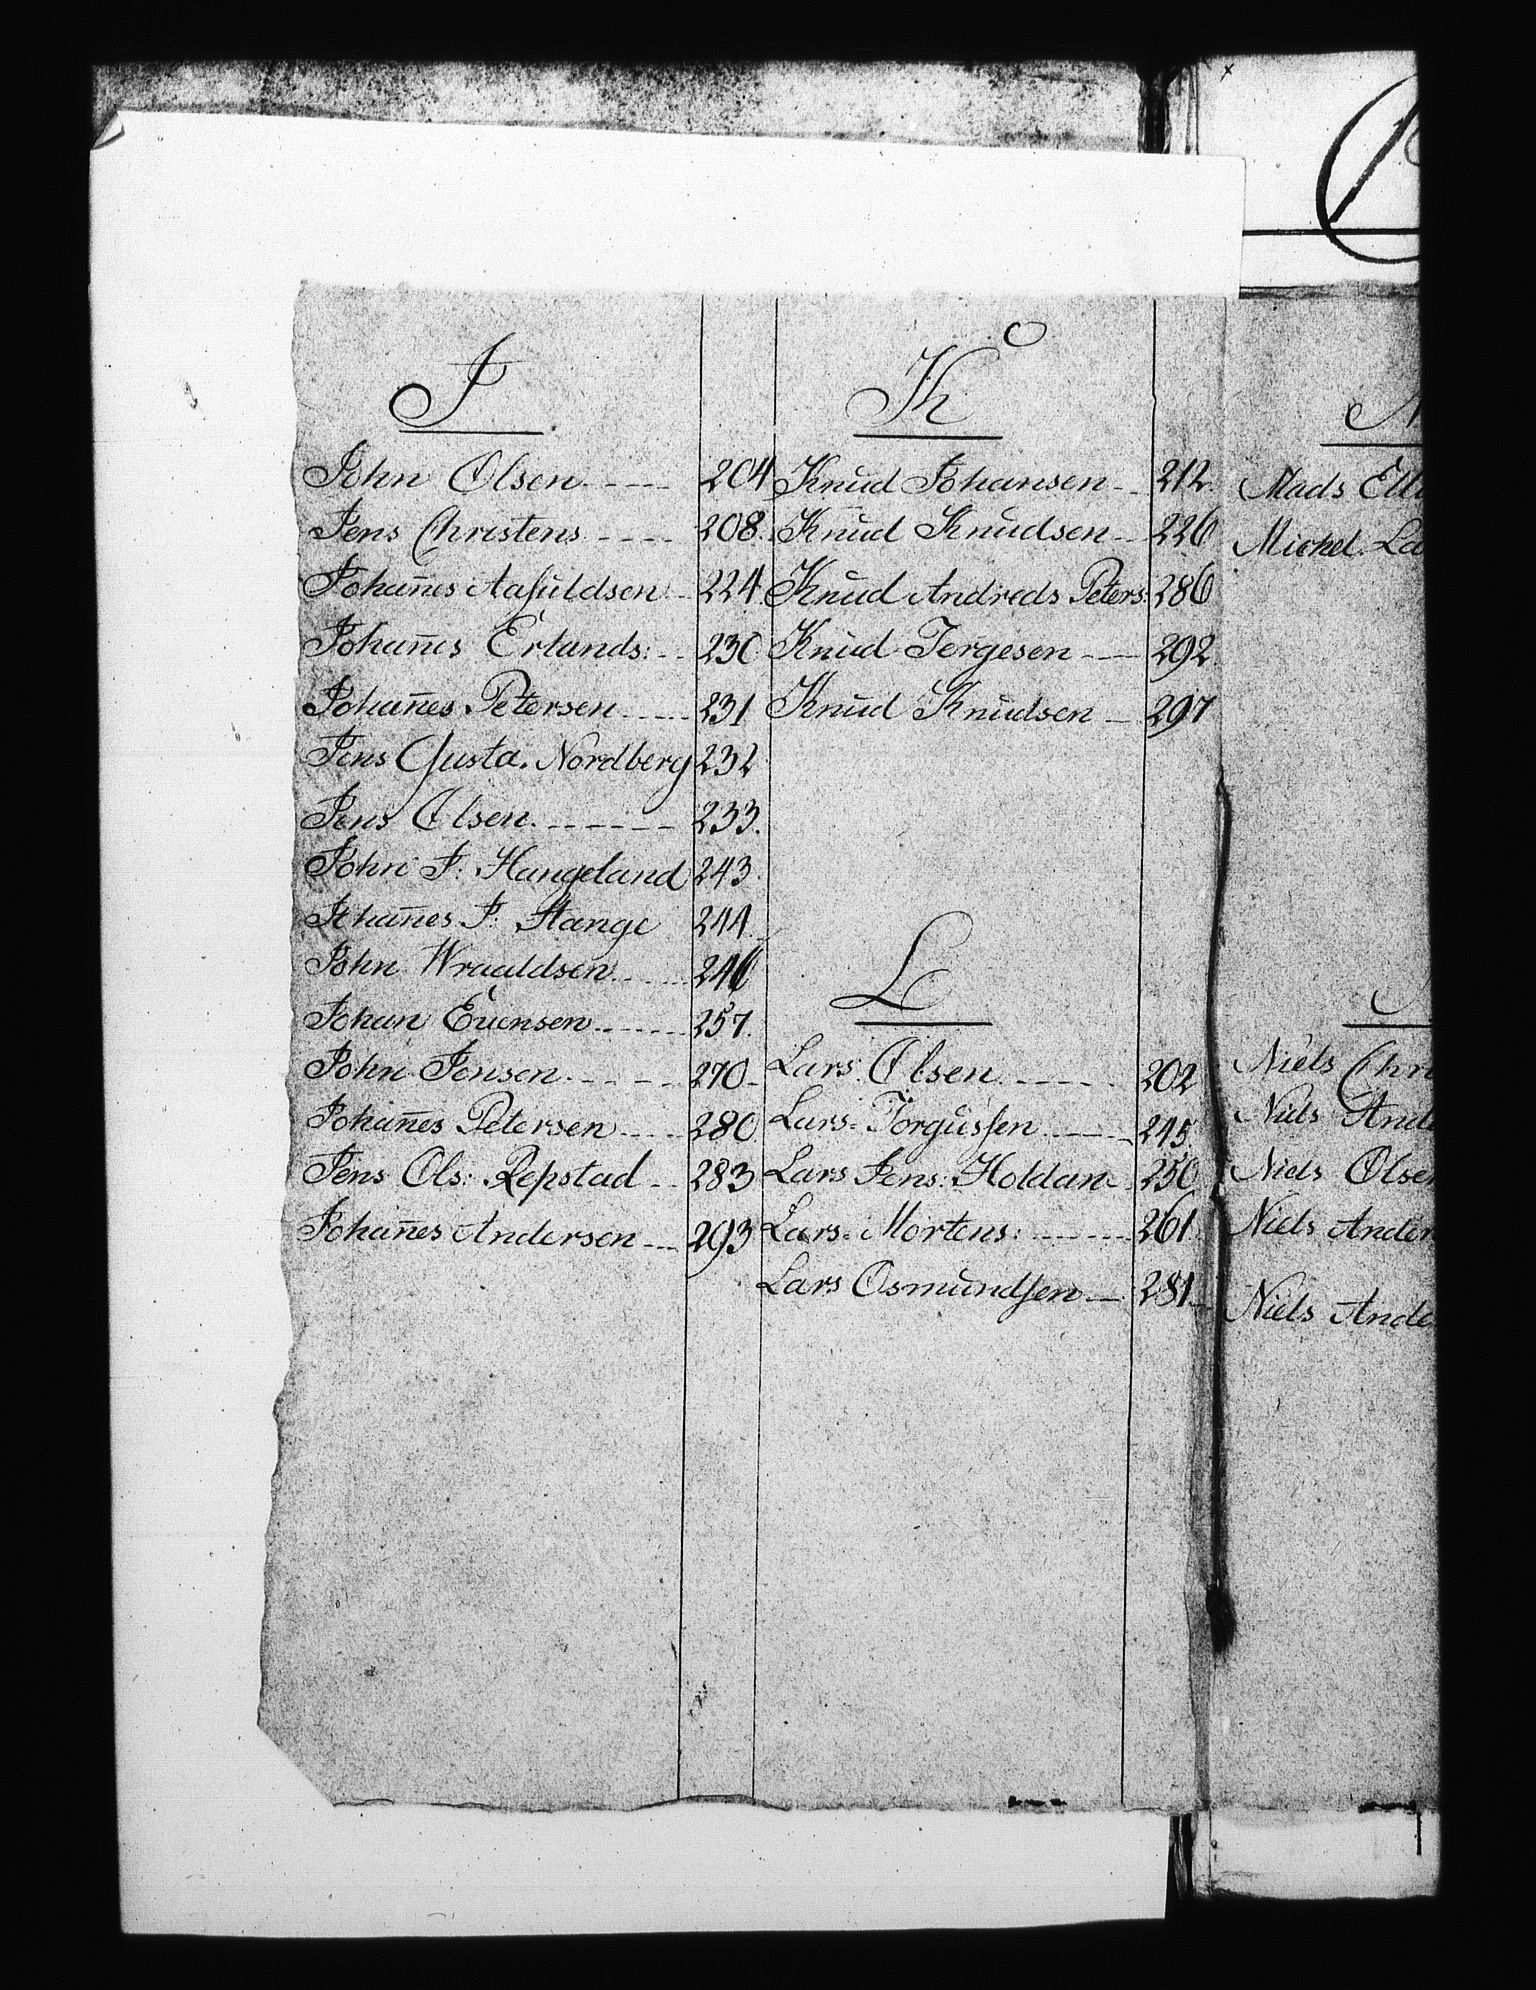 J
John Olsen 204
Jens Christens 208.
Johan̄es Aasuldsen 224
Johan̄es Erlands: 230
Johan̄es Petersen 231
Jens Gusta. Nordberg 232
Jens Olsen 233.
John J: Haugeland 243
Johan̄es J: Stange 244
John Wraaldsen 246
Johan Evensen 257.
John Jensen 270
Johan̄es Petersen 280
Jens Ols: Repstad 283
Johan̄es Andersen 293
K
Knud Johansen 212.
Knud Knudsen 226
Knud Andreas Peters: 286
Knud Jergesen 292.
Knud Knudsen 297
L
Lars Olsen 202
Lars Torgussen 245.
Lars Jens: Holdan 250
Lars Mortens: 261
Lars Osmundsen 281
Mads
Michel
Niels
Niels
Niels Olsen
Niels
Niels